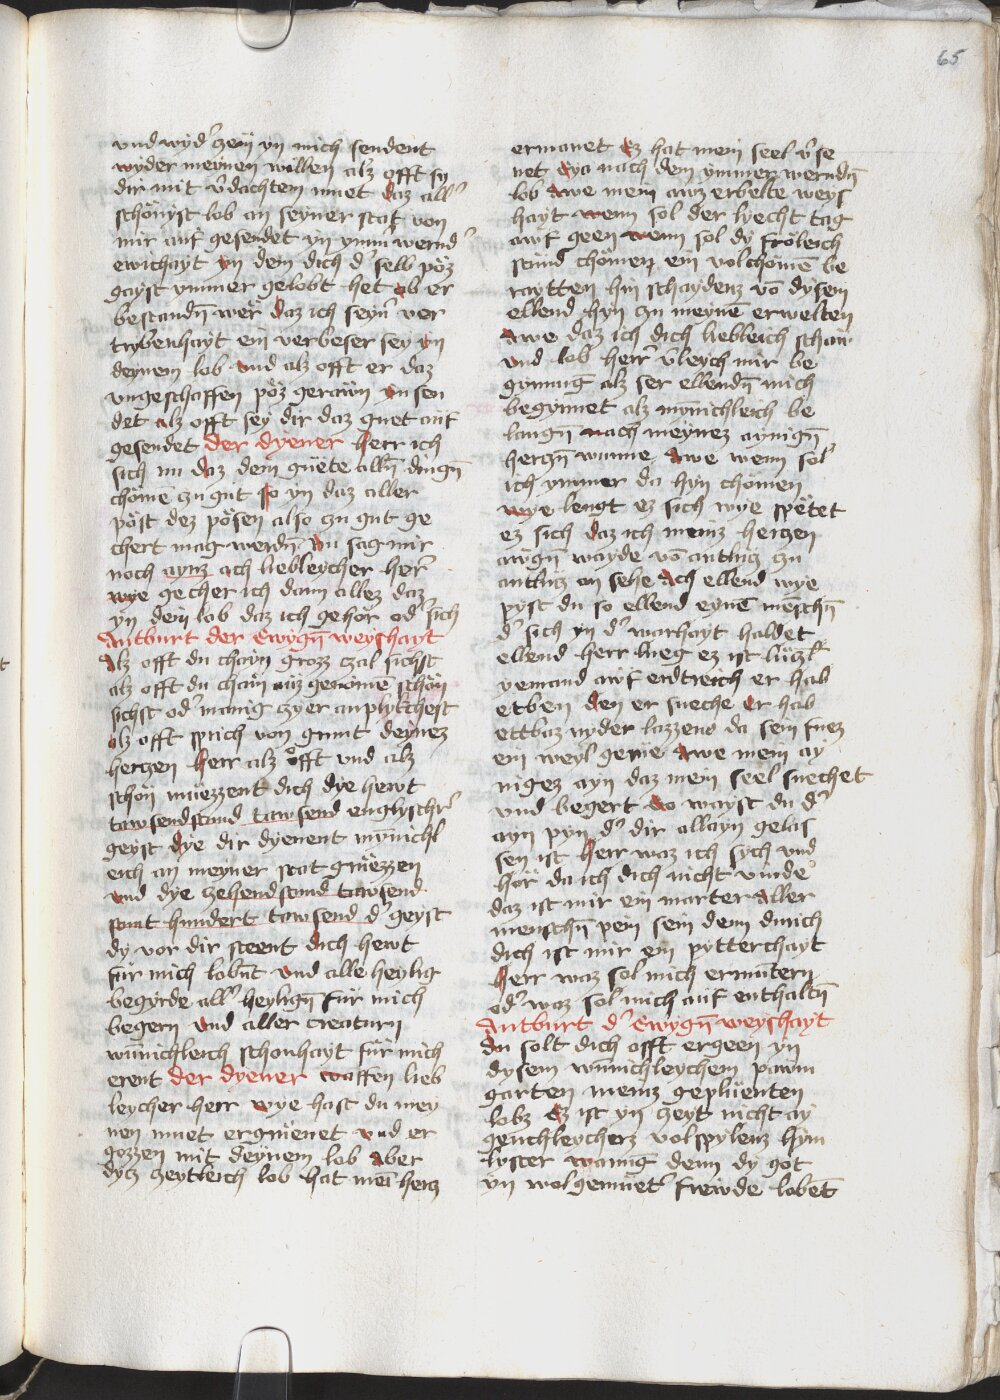 65
vnd wyd' hein yn mich sendent
wyder meynen willen alz offt sy
dir mit v'dachtem muet daz all'
schönyst lob an seyner stat von
mir auf gesendet yn ymm' wernd'
ewichayt yn dem dich d' selb pöz
gayst ymmer gelobt het ob er
bestandn̄ wer daz ich seyn' ver
trybenhayt ein verbeser sey yn
deynem lob vnd alz offt er daz
vngeschaffen pöz gerawn yn sen
det alz offt sey dir daz guet auf
gesendet der dyener herr ich
sich nu daz dem guete alln̄ dingn̄
chömē zu gut so yn daz aller
pöst dez pösen also zu gut ge
chert mag werdn̄ Nu sag mir
noch aynz ach liebleycher her'
wye gecher ich dann allez daz
yn dein lob daz ich gehör od' sich
Antburt der Ewygn̄ weyshayt
Alz offt du chayn grozz zal sichst
alz offt du chain auz genomē schön
sichst od' manig zyer anplykchest
alz offt sprich von grunt deynez
herczen herr alz offt vnd alz
schön müezzent dich dye hewt
tawsendstund tawsend englyscher'
geyst dye dir dyenent wȳnichl
eich an meyner stat grüezzen
vnd dye zehendstund tawsend
stunt hundert tawsend d' geyst
dy vor dir steent dich hewt
für mich lobnt vnd alle heylig
begyrde all' heylign̄ für mich
begern vnd aller creaturn
wūnichleich schonhayt für mich
erent der dyener waffen lieb
leycher herr wye hast du mey
nen muet ergrüenet vnd er
gozzen mit deynem lob Aber
dycz zeytleich lob hat mei herz
ermanet Ez hat mein seel v'se
net Eya nach dem ymmer werndn̄
lob Awe mein auz erbelte weys
hayt wenn sol der lyecht tag
awf geen wenn sol dy fröleich
stund chömen ein volchömē be
raytten hin schaydenz vō dysem
ellend hyn zu meynē erwelten
Awe daz ich dich liebleich schaw
vnd lob Herr v'leych mir be
gynnug alz ser ellendn̄ mich
begynnet alz wūnichleich be
langn̄ nach meynez aynign̄
herczn̄ wunne Awe wenn sol
ich ymmer da hyn chömen
wye lengt ez sich wye spëtet
ez sich daz ich meinz herczen
awgn̄ wayde vō antlucz zu
antlucz an sehe Ach ellend wye
pyst du so ellend eynē menschn̄
d' sich yn d' warhayt haldet
ellend herr lueg ez ist lüczl
yemand awf erdtreich er hab
etben den er sueche er hab
ettbaz nyder lazzens da sein fuez
ein weyl geruē Awe mein ay
nigez ayn daz mein seel suechet
vnd begert do wayst du d'
ayn pyn d' dir allayn gelas
sen ist herr waz ich sych vnd
hör da ich dich nicht vinde
daz ist mir ein marter Aller
menschn̄ pein sein denn durich
dich ist mir ein pytterchayt
herr waz sol mich ermūtern
od' waz sol mich auf enthaltn̄
Antburt d' Ewygn̄ weyshayt
du solt dich offt ergeen yn
dysem wūnichleychem pawm
garten meinz geplüenten
lobz Ez ist yn zeyt nicht ay
genchleycherz volspylenz hym
lyscer wanūg denn dy got
yn wolgemüet' frewde lobet